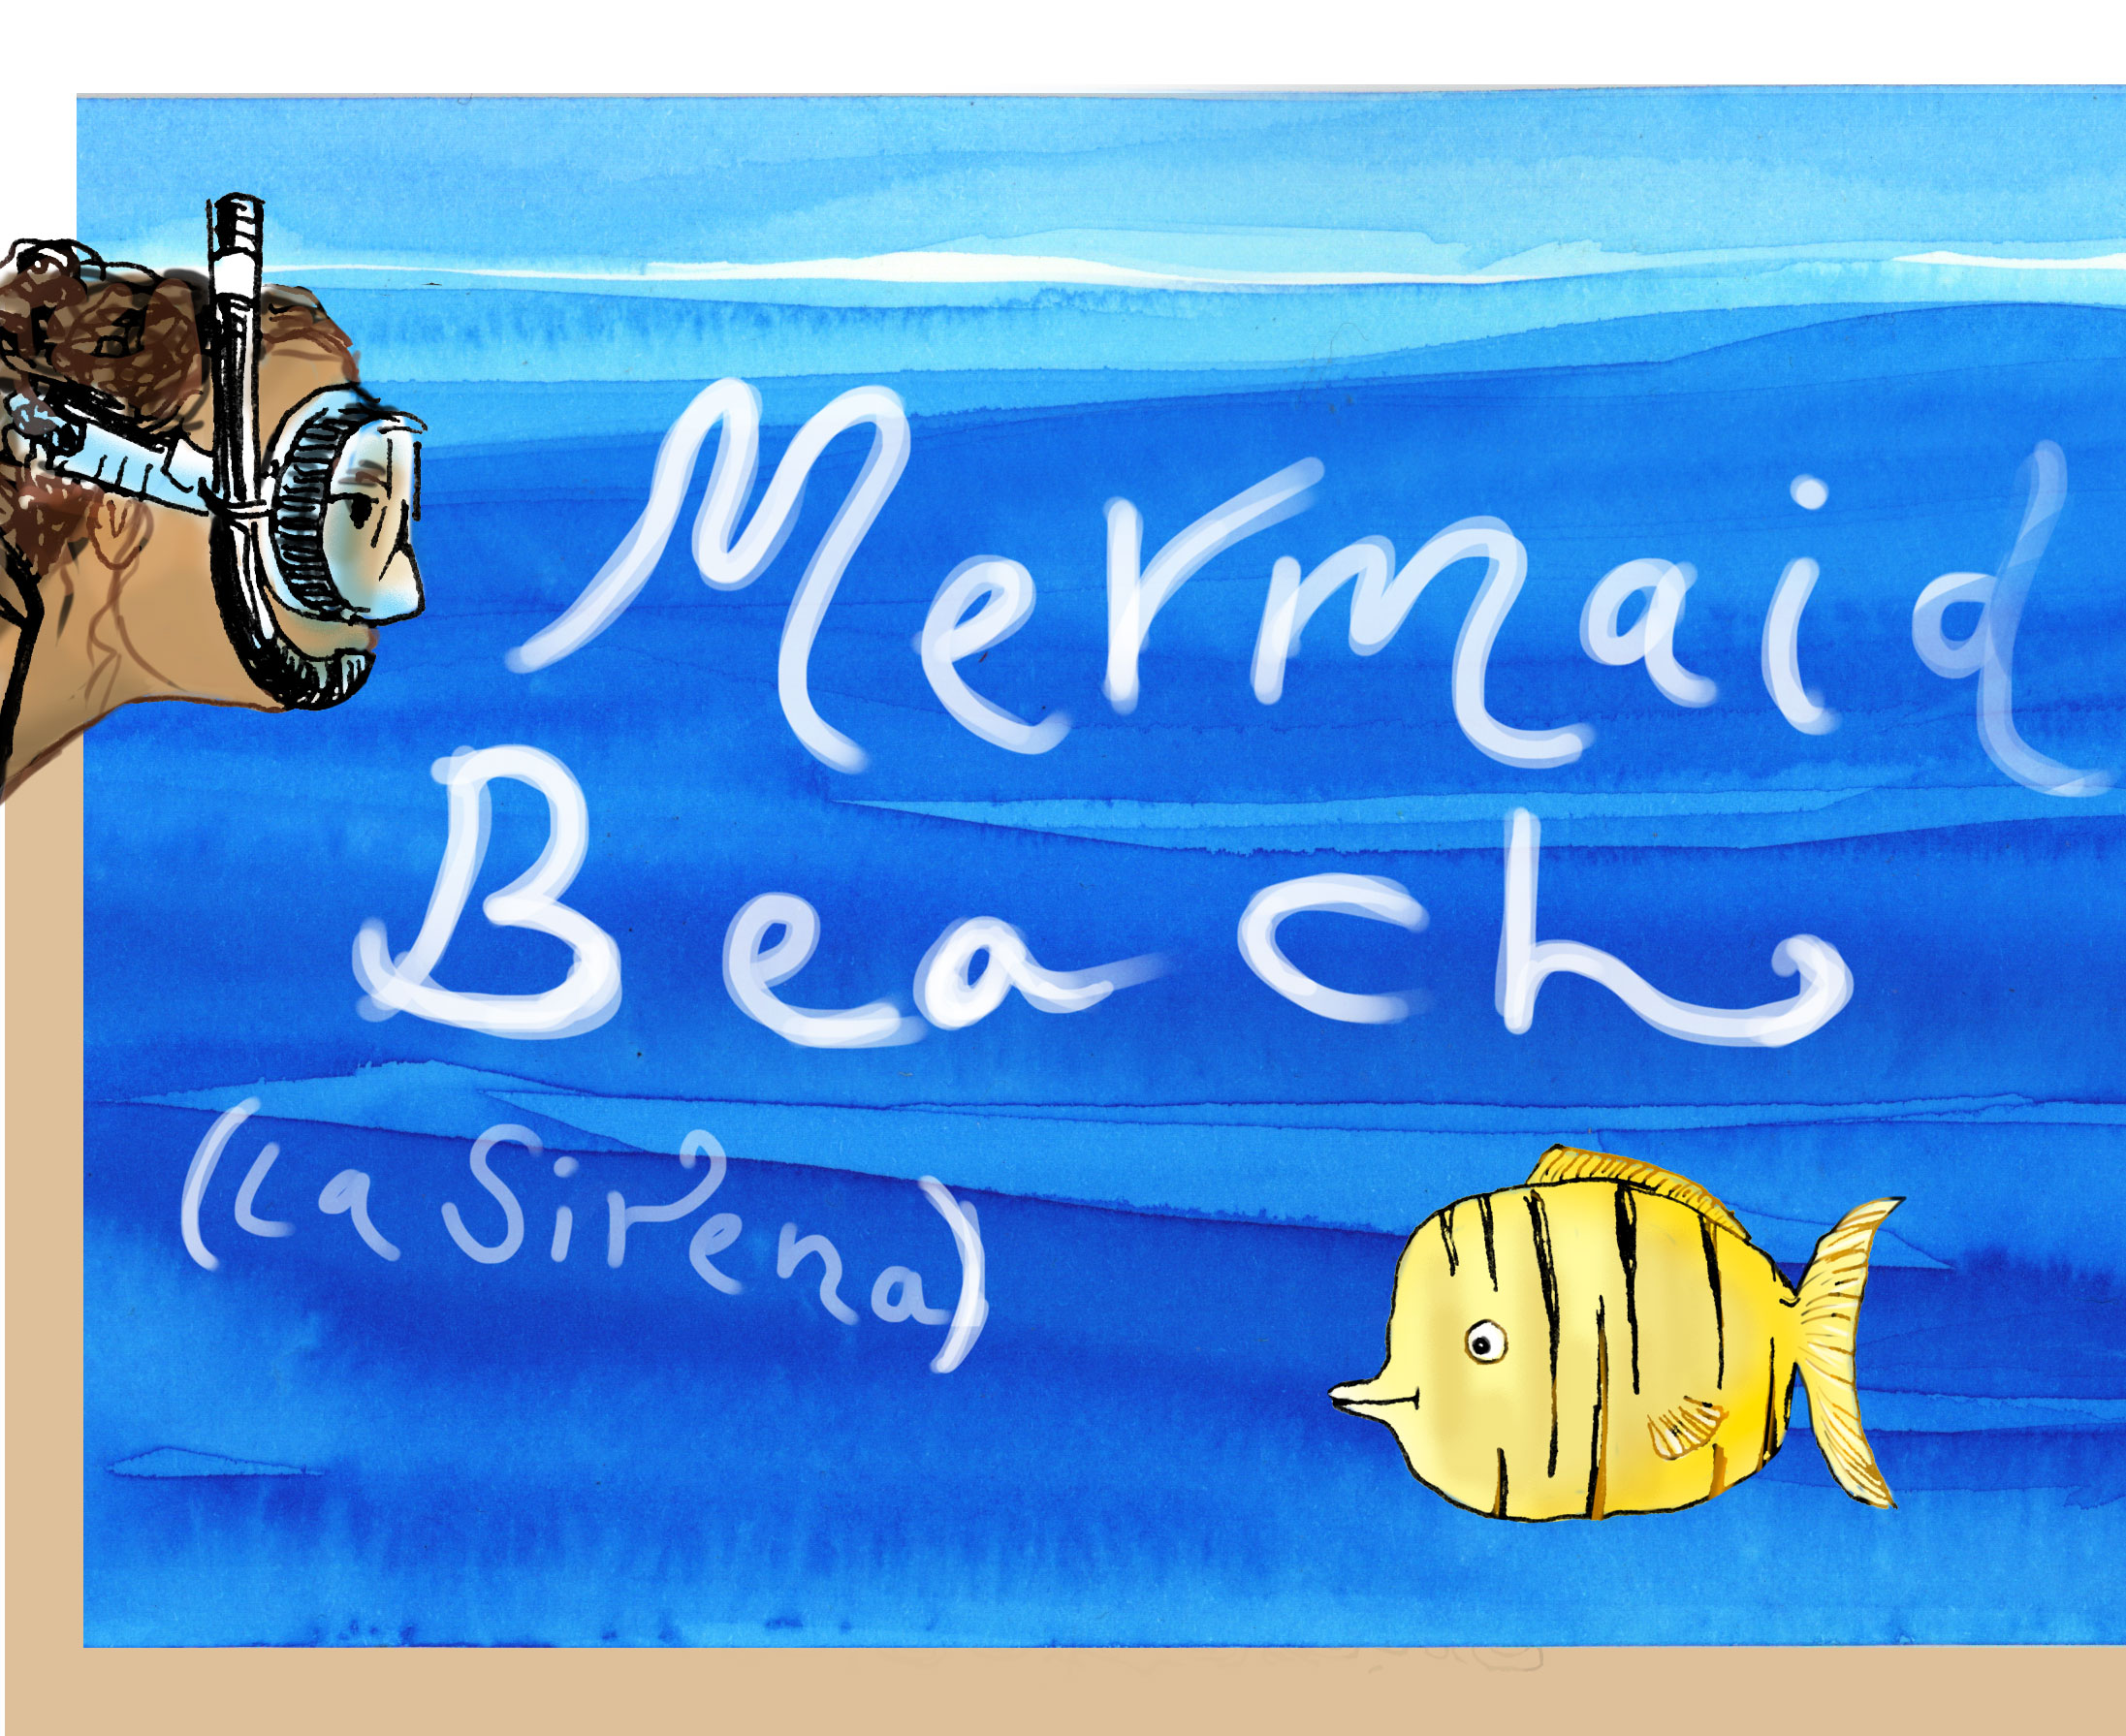 Mermaid
Beach
(La Sirena)